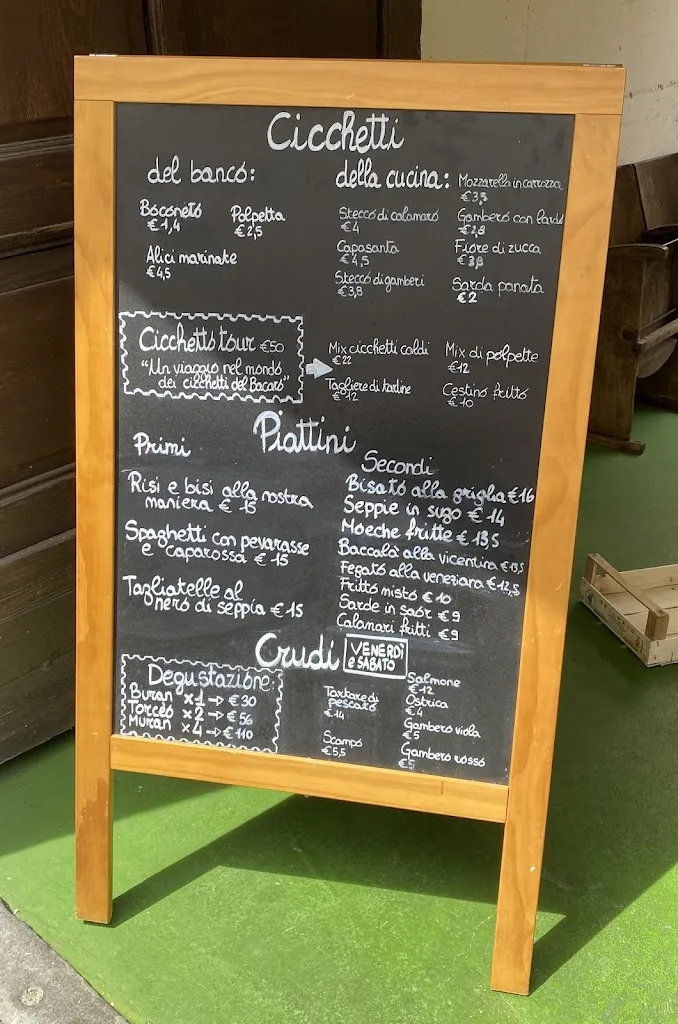 Cicchetti
del banco:
Boconeto
€1,4
Polpetta
€2,5
Alici marinate
€4,5
della cucina:
Stecco di calamaro
€4
Capasanta
€4,5
Stecco di gamberi
€3,8
Mozzarella in carrozza
€3,5
Gambero con lardo
€2,8
Fiore di zucca
€3,8
Sarda panata
€2
Cicchetto tour €50
"Un viaggio nel mondo
dei cicchetti del Bacaro"
Mix cicchetti caldi
€22
Tagliere di
€12
Mix di polpette
€12
Cestino fritto
€10
Piattini
Primi
Risi e bisi alla nostra
maniera € 15
Spaghetti con pevarasse
e caparossa € 15
Tagliatelle al
nero di seppia €15
Secondi
Bisato alla griglia €16
Seppie in sugo € 14
Moeche fritte € 13,5
Baccalà alla vicentina €13,5
Fegato alla veneziana €12,5
Fritto misto € 10
Sarde in saor € 9
Calamari fritti €9
Crudi
VENERDÌ
e SABATO
Degustazione:
Buran x1 → €30
Torceo x2 → €56
Muran x4 → €110
Tartare di
pescato
€14
Scampo
€5,5
Salmone
€12
Ostrica
€4
Gambero viola
€5
Gambero rosso
€5